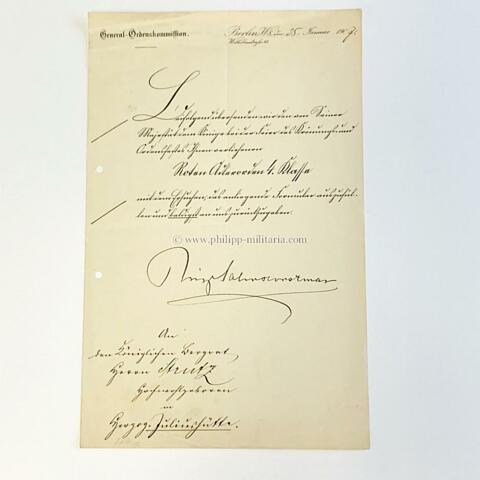 General-Ordenskommission.
Berlin W. den 25. Januar 1907.
Wilhelmstraße
Beifolgend übersenden wir den von Seiner
Majestät dem Könige bei der Feier des Krönungs- und
Ordensfestes Ihnen verliehenen
Roten Adlerorden 4. Klasse
mit dem Ersuchen, das anliegende Formular auszufül-
len und baldigst an uns zurückzugeben.
© www.philipp-militaria.com
An
den Königlichen Bergrat,
Herrn Strutz
Hochwohlgeboren
in
Herzog-Juliushütte.